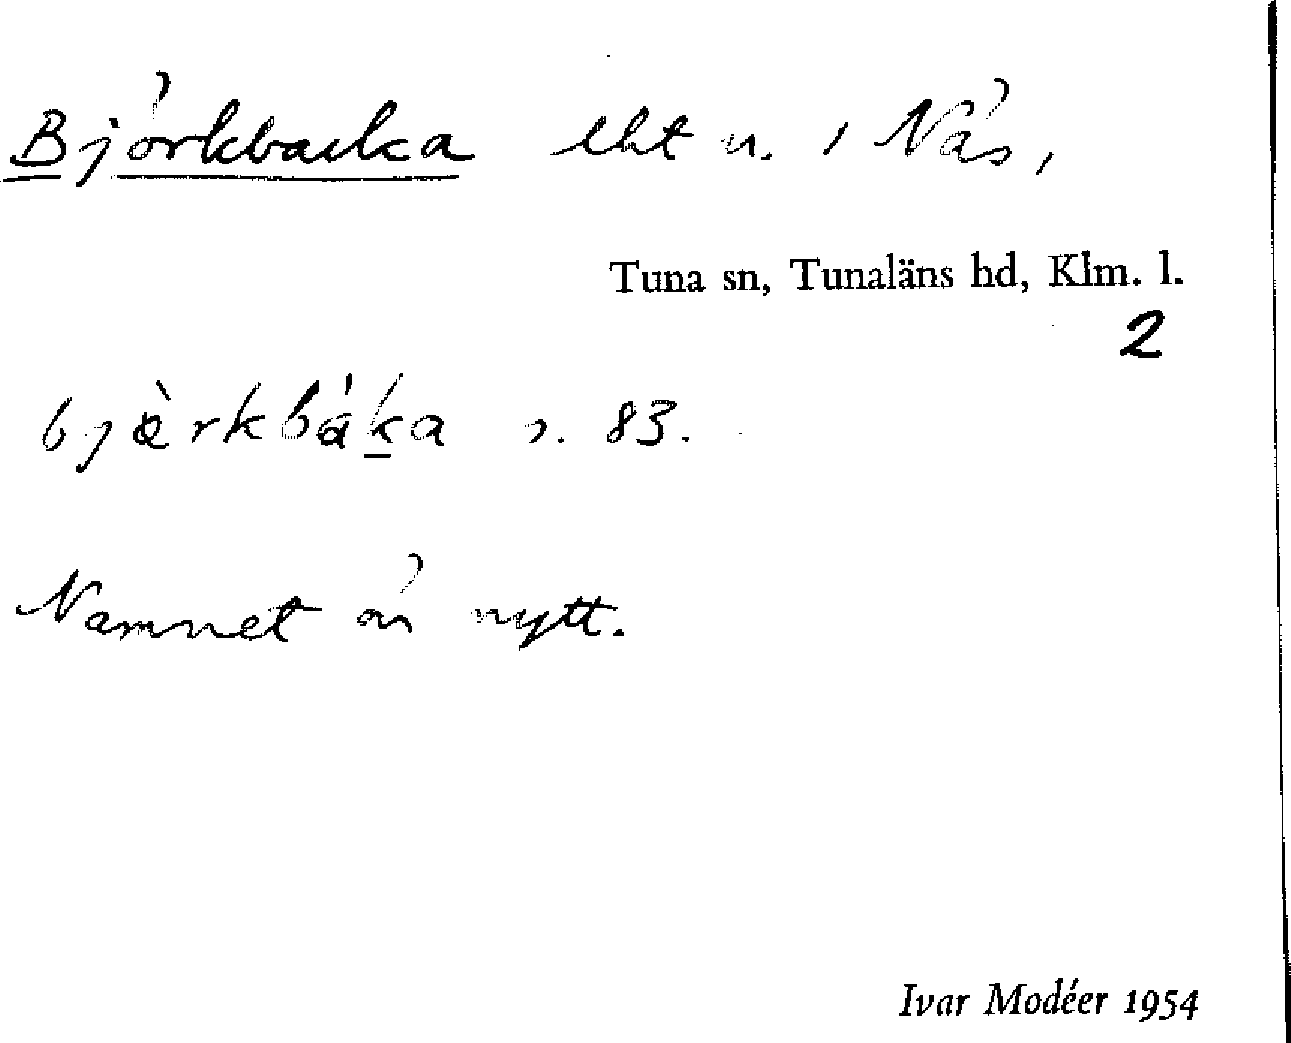 Björkbacka lht u. i Näs,
Tuna sn, Tunaläns hd, Klm. l.
2
bjærkbáḵa s. 83.
Namnet är nytt.
Ivar Modéer 1954